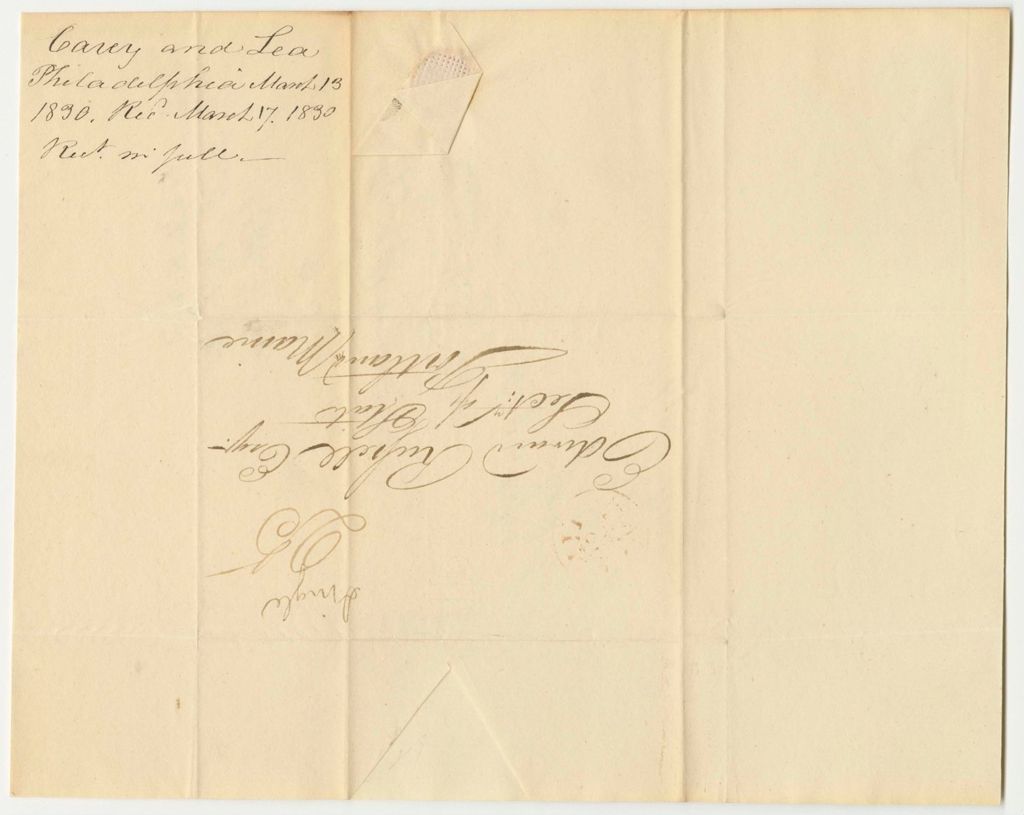 Carey and Lea
Philadelphia March 13
1830. Rec'd March 17. 1830
Rect. in full.
Single
25
Edward Russell Esqr.
Secty. of State
Portland / Maine